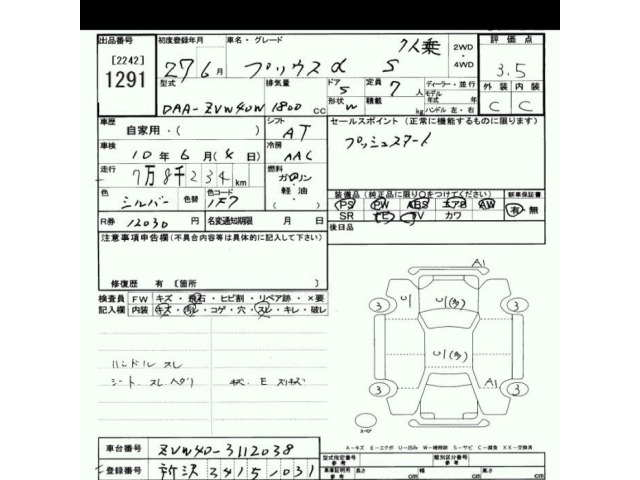 出品番号 初度登録年月 車名・グレード 7人乗 2WD・4WD 評価点
[2242] 1291 27年6月 プリウスα S 3.5
型式 排気量 ドア 定員 ディーラー・並行 外装 内装
DAA-ZVW40W 1800 CC 5 7人 モデル 年式 年
形状 W 積載 kg ハンドル 左・右 C C
車歴 シフト セールスポイント (正常に機能するものに限ります)
自家用・( ) AT プッシュスタート
車検 冷房
10年6月(4日) AAC
走行 燃料
7万8千234km ガソリン 軽・油
色 色替 色コード 装備品(純正品に限り○をつけてください) 新車保証書
シルバー 1F7 PS PW ABS エアB AW 有・無
R券 12030円 名変通知期限 月 日 SR TV カワ
注意事項申告欄(不具合内容等は具体的に記入して下さい) 後日品
修復歴 有 [箇所
検査員 FW キズ・飛石・ヒビ割・リペア跡・×要
記入欄 内装 キズ・汚レ・コゲ・穴・スレ・キレ・破レ
A1
3 U1 U1(多) 3
U1(多)
3 A1 3
ハンドル スレ
シート スレ ヘタリ
スペア
A-キズ E-エクボ U-凹み W-補修跡 S-サビ C-腐食 XX-交換済
車台番号 ZVW40-3112038
型式指定番号 参考 類別区分番号 参考
登録番号 所沢 341 5 1031
車検証記載 参考 長さ cm 幅 cm 高さ cm